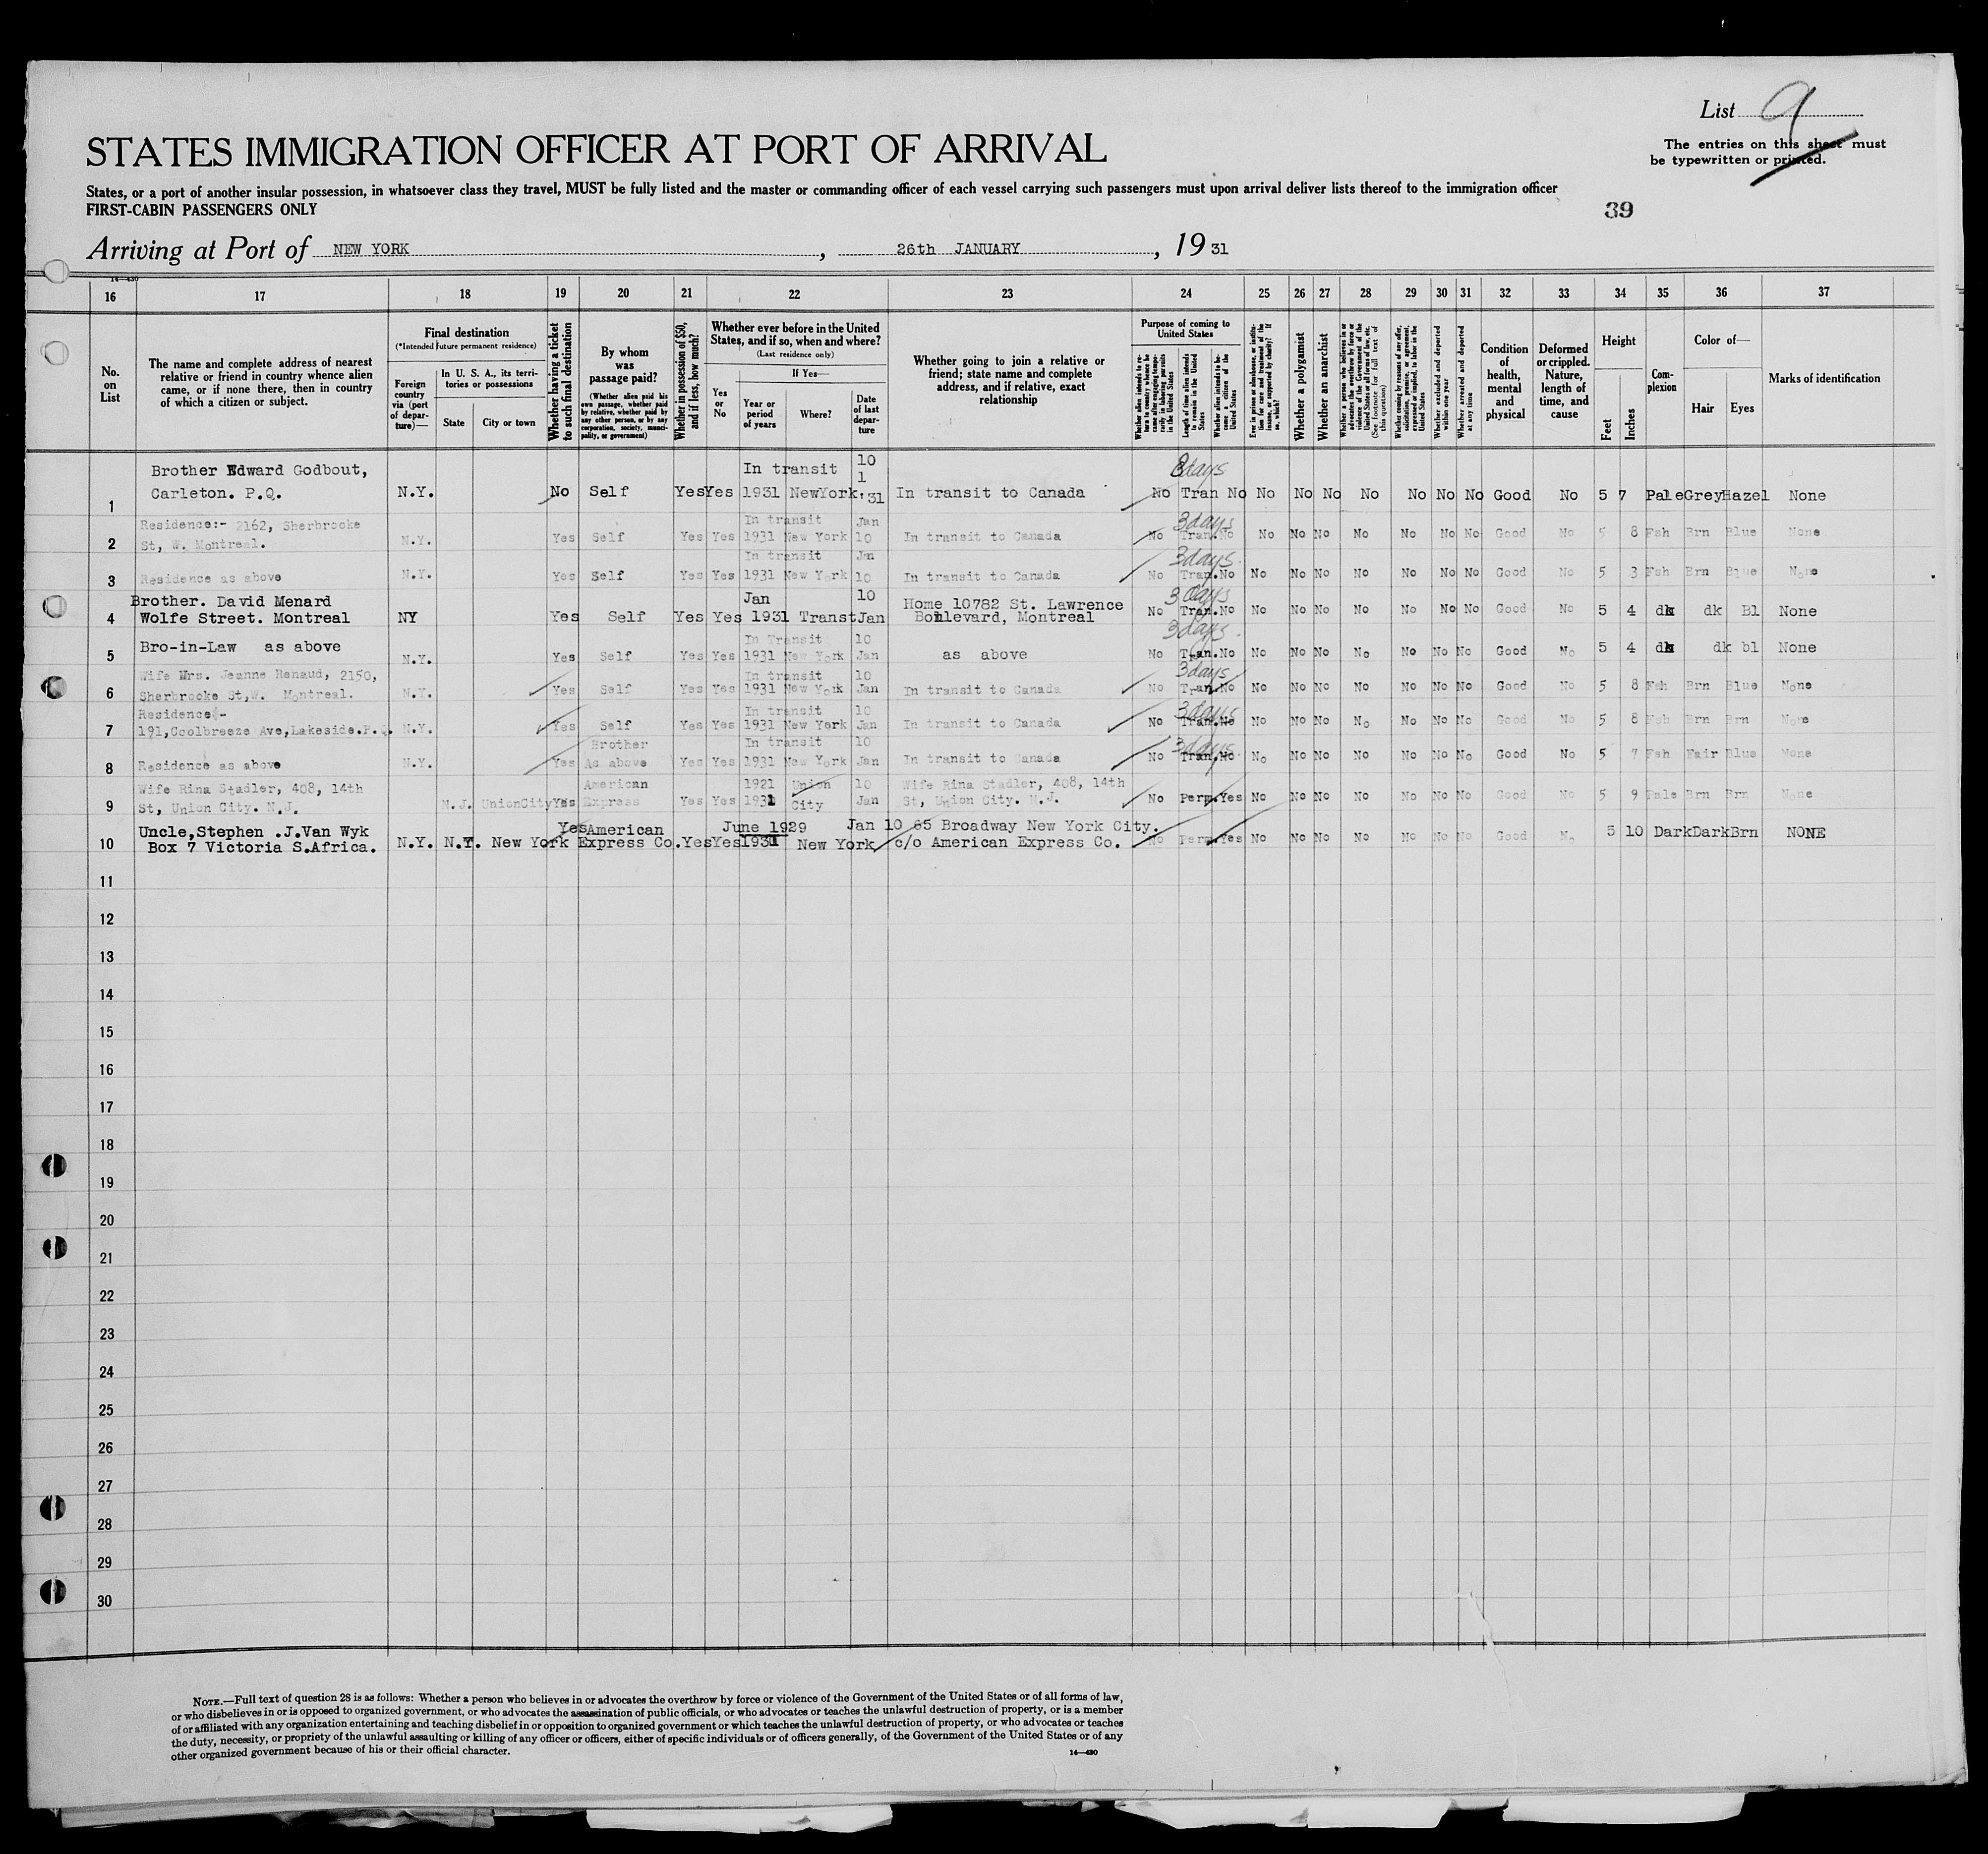 List 9
The entries on this sheet must
be typewritten or printed.
STATES IMMIGRATION OFFICER AT PORT OF ARRIVAL
States, or a port of another insular possession, in whatsoever class they travel, MUST be fully listed and the master or commanding officer of each vessel carrying such passengers must upon arrival deliver lists thereof to the immigration officer
FIRST-CABIN PASSENGERS ONLY
39
Arriving at Port of NEW YORK, 26th JANUARY, 19 31
14—430
16 17 18 19 20 21 22 23 24 25 26 27 28 29 30 31 32 33 34 35 36 37
No. on List
The name and complete address of nearest
relative or friend in country whence alien
came, or if none there, then in country
of which a citizen or subject.
Final destination
(*Intended future permanent residence)
Foreign country via (port of departure)—
In U. S. A., its territories or possessions
State
City or town
Whether having a ticket to such final destination
By whom was passage paid?
(Whether alien paid his own passage, whether paid by relative, whether paid by any other person, or by any corporation, society, municipality, or government)
Whether in possession of $50, and if less, how much?
Whether ever before in the United States, and if so, when and where?
(Last residence only)
Yes or No
If Yes—
Year or period of years
Where?
Date of last departure
Whether going to join a relative or
friend; state name and complete
address, and if relative, exact
relationship
Purpose of coming to United States
Whether alien intends to return to country whence he came after engaging temporarily in laboring pursuits in the United States
Length of time alien intends to remain in the United States
Whether alien intends to become a citizen of the United States
Ever in prison or almshouse, or institution for care and treatment of the insane, or supported by charity? If so, which?
Whether a polygamist
Whether an anarchist
Whether a person who believes in or advocates the overthrow by force or violence of the Government of the United States or all forms of law, etc. (See footnote for full text of this question)
Whether coming by reasons of any offer, solicitation, promise, or agreement, expressed or implied, to labor in the United States
Whether excluded and deported within one year
Whether arrested and deported at any time
Condition of health, mental and physical
Deformed or crippled. Nature, length of time, and cause
Height
Feet
Inches
Complexion
Color of—
Hair
Eyes
Marks of identification
1 Brother Edward Godbout, Carleton. P.Q. N.Y. No Self Yes Yes In transit 1931 NewYork 10 1 '31 In transit to Canada 8days No Tran No No No No No No No No Good No 5 7 Pale Grey Hazel None
2 Residence:- 2162, Sherbrooke St, W. Montreal. N.Y. Yes Self Yes Yes In transit 1931 New York Jan 10 In transit to Canada 3days No Tran. No No No No No No No No Good No 5 8 Fsh Brn Blue None
3 Residence as above N.Y. Yes Self Yes Yes In transit 1931 New York Jan 10 In transit to Canada 3days No Tran. No No No No No No No No Good No 5 3 Fsh Brn Blue None
4 Brother. David Menard Wolfe Street. Montreal NY Yes Self Yes Yes Jan 1931 Transt 10 Jan Home 10782 St. Lawrence Boulevard, Montreal 3days No Tran. No No No No No No No No Good No 5 4 dk dk Bl None
5 Bro-in-Law as above N.Y. Yes Self Yes Yes In Transit 1931 New York 10 Jan as above 3days No Tran. No No No No No No No No Good No 5 4 dk dk bl None
6 Wife Mrs. Jeanne Renaud, 2150, Sherbrooke St,W. Montreal. N.Y. Yes Self Yes Yes In transit 1931 New York 10 Jan In transit to Canada 3days No Tran. No No No No No No No No Good No 5 8 Fsh Brn Blue None
7 Residence:- 191,Coolbreeze Ave,Lakeside.P.Q. N.Y. Yes Self Yes Yes In transit 1931 New York 10 Jan In transit to Canada 3days No Tran. No No No No No No No No Good No 5 8 Fsh Brn Brn None
8 Residence as above N.Y. Yes Brother As above Yes Yes In transit 1931 New York 10 Jan In transit to Canada 3days No Tran. No No No No No No No No Good No 5 7 Fsh Fair Blue None
9 Wife Rina Stadler, 408, 14th St, Union City. N.J. N.J. UnionCity Yes American Express Yes Yes 1921 1931 Union City 10 Jan Wife Rina Stadler, 408, 14th St, Union City. N.J. No Perm. Yes No No No No No No No Good No 5 9 Pale Brn Brn None
10 Uncle,Stephen .J.Van Wyk Box 7 Victoria S.Africa. N.Y. N.Y. New York Yes American Express Co. Yes Yes June 1929 1931 New York Jan 10 65 Broadway New York City. c/o American Express Co. No Perm. Yes No No No No No No No Good No 5 10 Dark Dark Brn NONE
11
12
13
14
15
16
17
18
19
20
21
22
23
24
25
26
27
28
29
30
NOTE.—Full text of question 28 is as follows: Whether a person who believes in or advocates the overthrow by force or violence of the Government of the United States or of all forms of law,
or who disbelieves in or is opposed to organized government, or who advocates the assassination of public officials, or who advocates or teaches the unlawful destruction of property, or is a member
of or affiliated with any organization entertaining and teaching disbelief in or opposition to organized government or which teaches the unlawful destruction of property, or who advocates or teaches
the duty, necessity, or propriety of the unlawful assaulting or killing of any officer or officers, either of specific individuals or of officers generally, of the Government of the United States or of any
other organized government because of his or their official character.
14—430